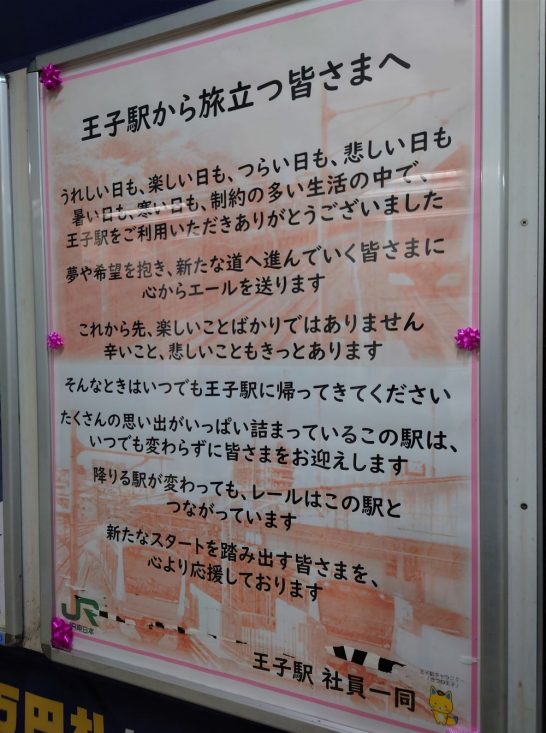 王子駅から旅立つ皆さまへ
うれしい日も、楽しい日も、つらい日も、悲しい日も
暑い日も、寒い日も、制約の多い生活の中で、
王子駅をご利用いただきありがとうございました
夢や希望を抱き、新たな道へ進んでいく皆さまに
心からエールを送ります
これから先、楽しいことばかりではありません
辛いこと、悲しいこともきっとあります
そんなときはいつでも王子駅に帰ってきてください
たくさんの思い出がいっぱい詰まっているこの駅は、
いつでも変わらずに皆さまをお迎えします
降りる駅が変わっても、レールはこの駅と
つながっています
新たなスタートを踏み出す皆さまを、
心より応援しております
JR
JR東日本
王子駅 社員一同
万円札